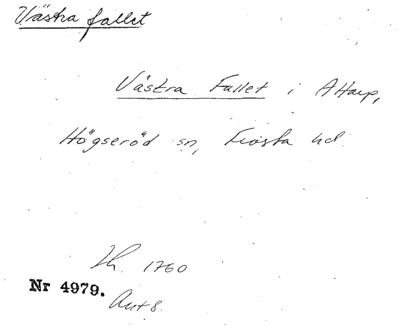 Västra fallet
Västra Fallet i Attarp,
Högseröd sn, Frosta hd.
1760
Nr 4979.